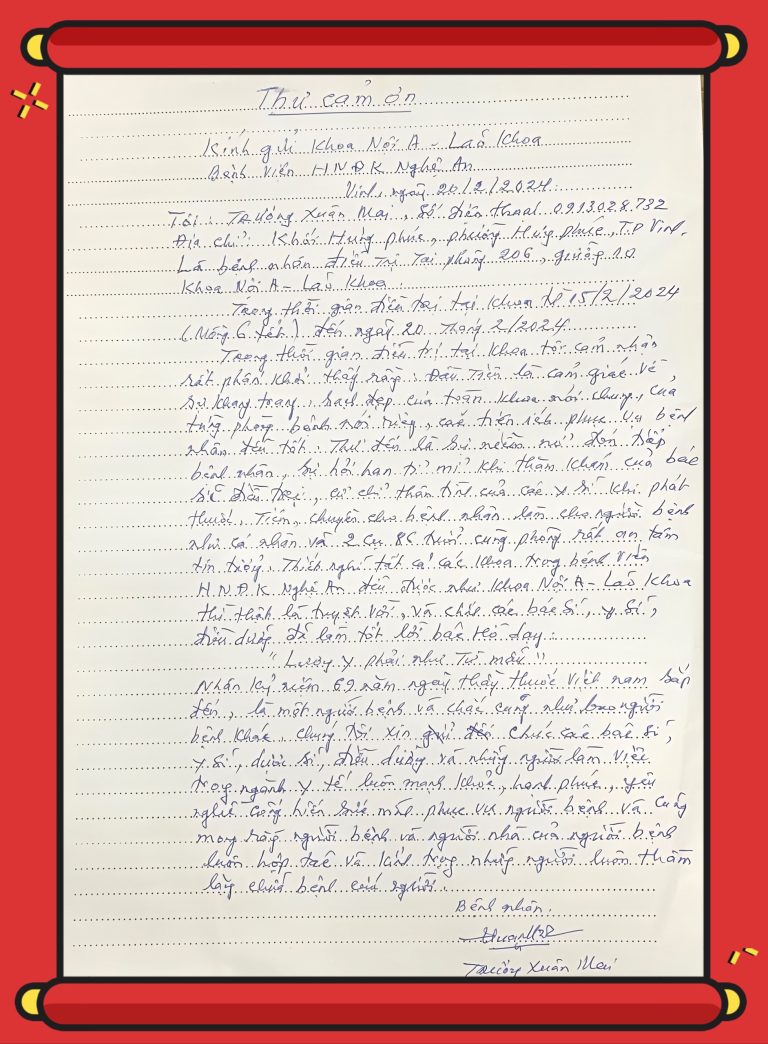 Thư cảm ơn
Kính gửi Khoa Nội A - Lão Khoa
Bệnh Viện HNĐK Nghệ An
Vinh, ngày 20/2/2024.
Tôi: Trương Xuân Mai, Số điện thoại 0913028732
Địa chỉ: Khối Hưng phúc, phường Hưng phúc, T.P Vinh.
Là bệnh nhân điều Trị Tại phòng 206, giường 10
Khoa Nội A - Lão Khoa.
Trong thời gian điều trị tại Khoa từ 15/2/2024
(Mồng 6 tết) đến ngày 20 Tháng 2/2024
Trong thời gian điều trị tại Khoa tôi cảm nhận
rất phấn khởi thấy rằng: Đầu Tiên là cảm giác về
Sự khang trang, sạch đẹp của toàn khoa nói chung, của
từng phòng bệnh nói riêng, các tiện ích phục vụ bệnh
nhân đều tốt. Thứ đến là Sự niềm nở đón tiếp
bệnh nhân, Sự hỏi han tỉ mỉ khi thăm khám của bác
sĩ điều trị, cử chỉ thân tình của các y sĩ khi phát
thuốc, Tiêm, chuyền cho bệnh nhân làm cho người bệnh
như cá nhân và 2 cụ 86 tuổi cùng phòng rất an tâm
tin tưởng. Thiết nghĩ tất cả các Khoa trong bệnh viện
HNĐK Nghệ An đều được như Khoa Nội A - Lão Khoa
thì thật là tuyệt vời, và chắc các bác sĩ, y sĩ,
điều dưỡng đã làm tốt lời bác Hồ dạy:
"Lương y phải như Từ mẫu"
Nhân kỷ niệm 69 năm ngày thầy thuốc Việt nam sắp
đến, là một người bệnh và chắc cũng như bao người
bệnh khác, chúng tôi xin gửi đến chúc các bác sĩ,
y sĩ, dược sĩ, điều dưỡng và những người làm việc
trong ngành y tế luôn mạnh khỏe, hạnh phúc, yêu
nghề cống hiến sức mình phục vụ người bệnh và cũng
mong rằng người bệnh và người nhà của người bệnh
luôn hợp tác và kính trọng những người luôn thầm
lặng chữa bệnh cứu người.
Bệnh nhân.
Trương Xuân Mai